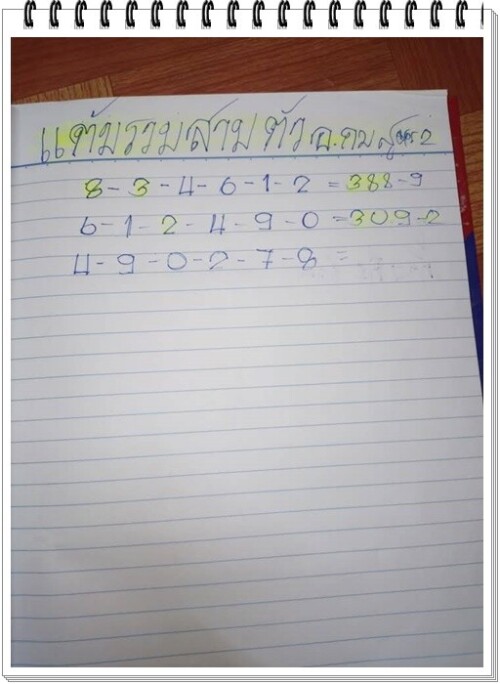 แต้มรวมสามตัว อ.ถม สูตร2
8-3-4-6-1-2 = 388-9
6-1-2-4-9-0 = 309-2
4-9-0-2-7-8 =